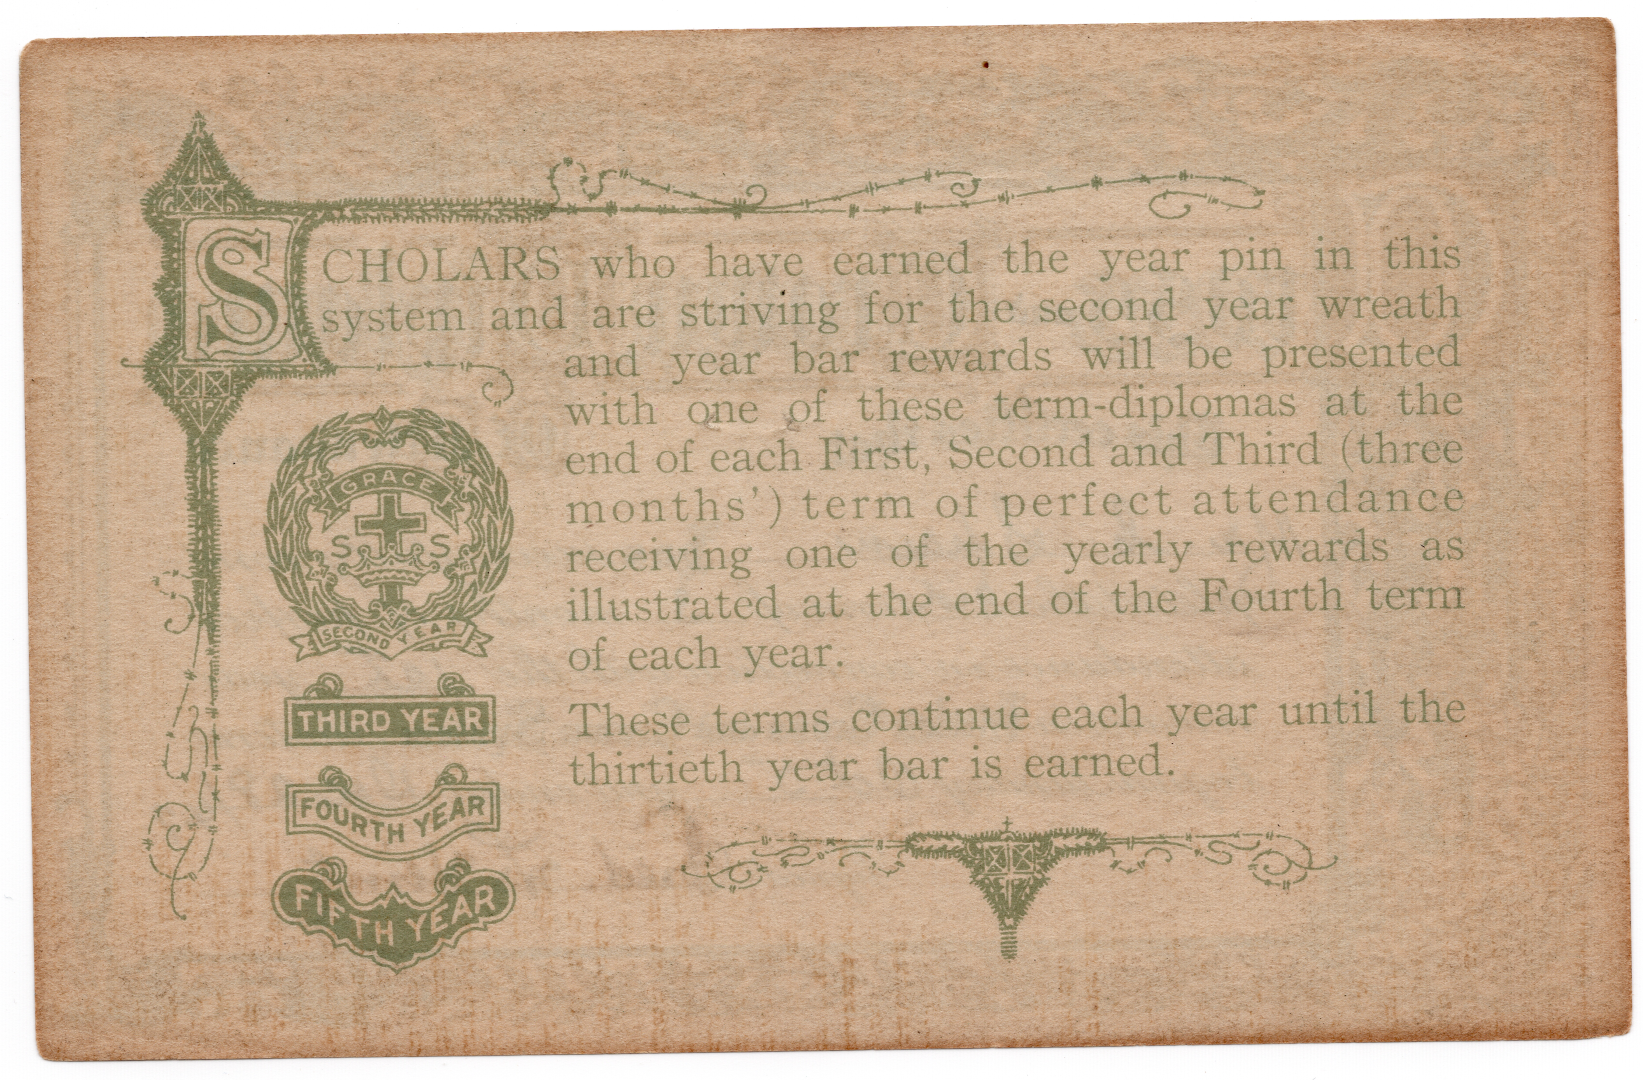 SCHOLARS who have earned the year pin in this
system and are striving for the second year wreath
and year bar rewards will be presented
with one of these term-diplomas at the
end of each First, Second and Third (three
months') term of perfect attendance
receiving one of the yearly rewards as
illustrated at the end of the Fourth term
of each year.
These terms continue each year until the
thirtieth year bar is earned.
GRACE
S S
SECOND YEAR
THIRD YEAR
FOURTH YEAR
FIFTH YEAR